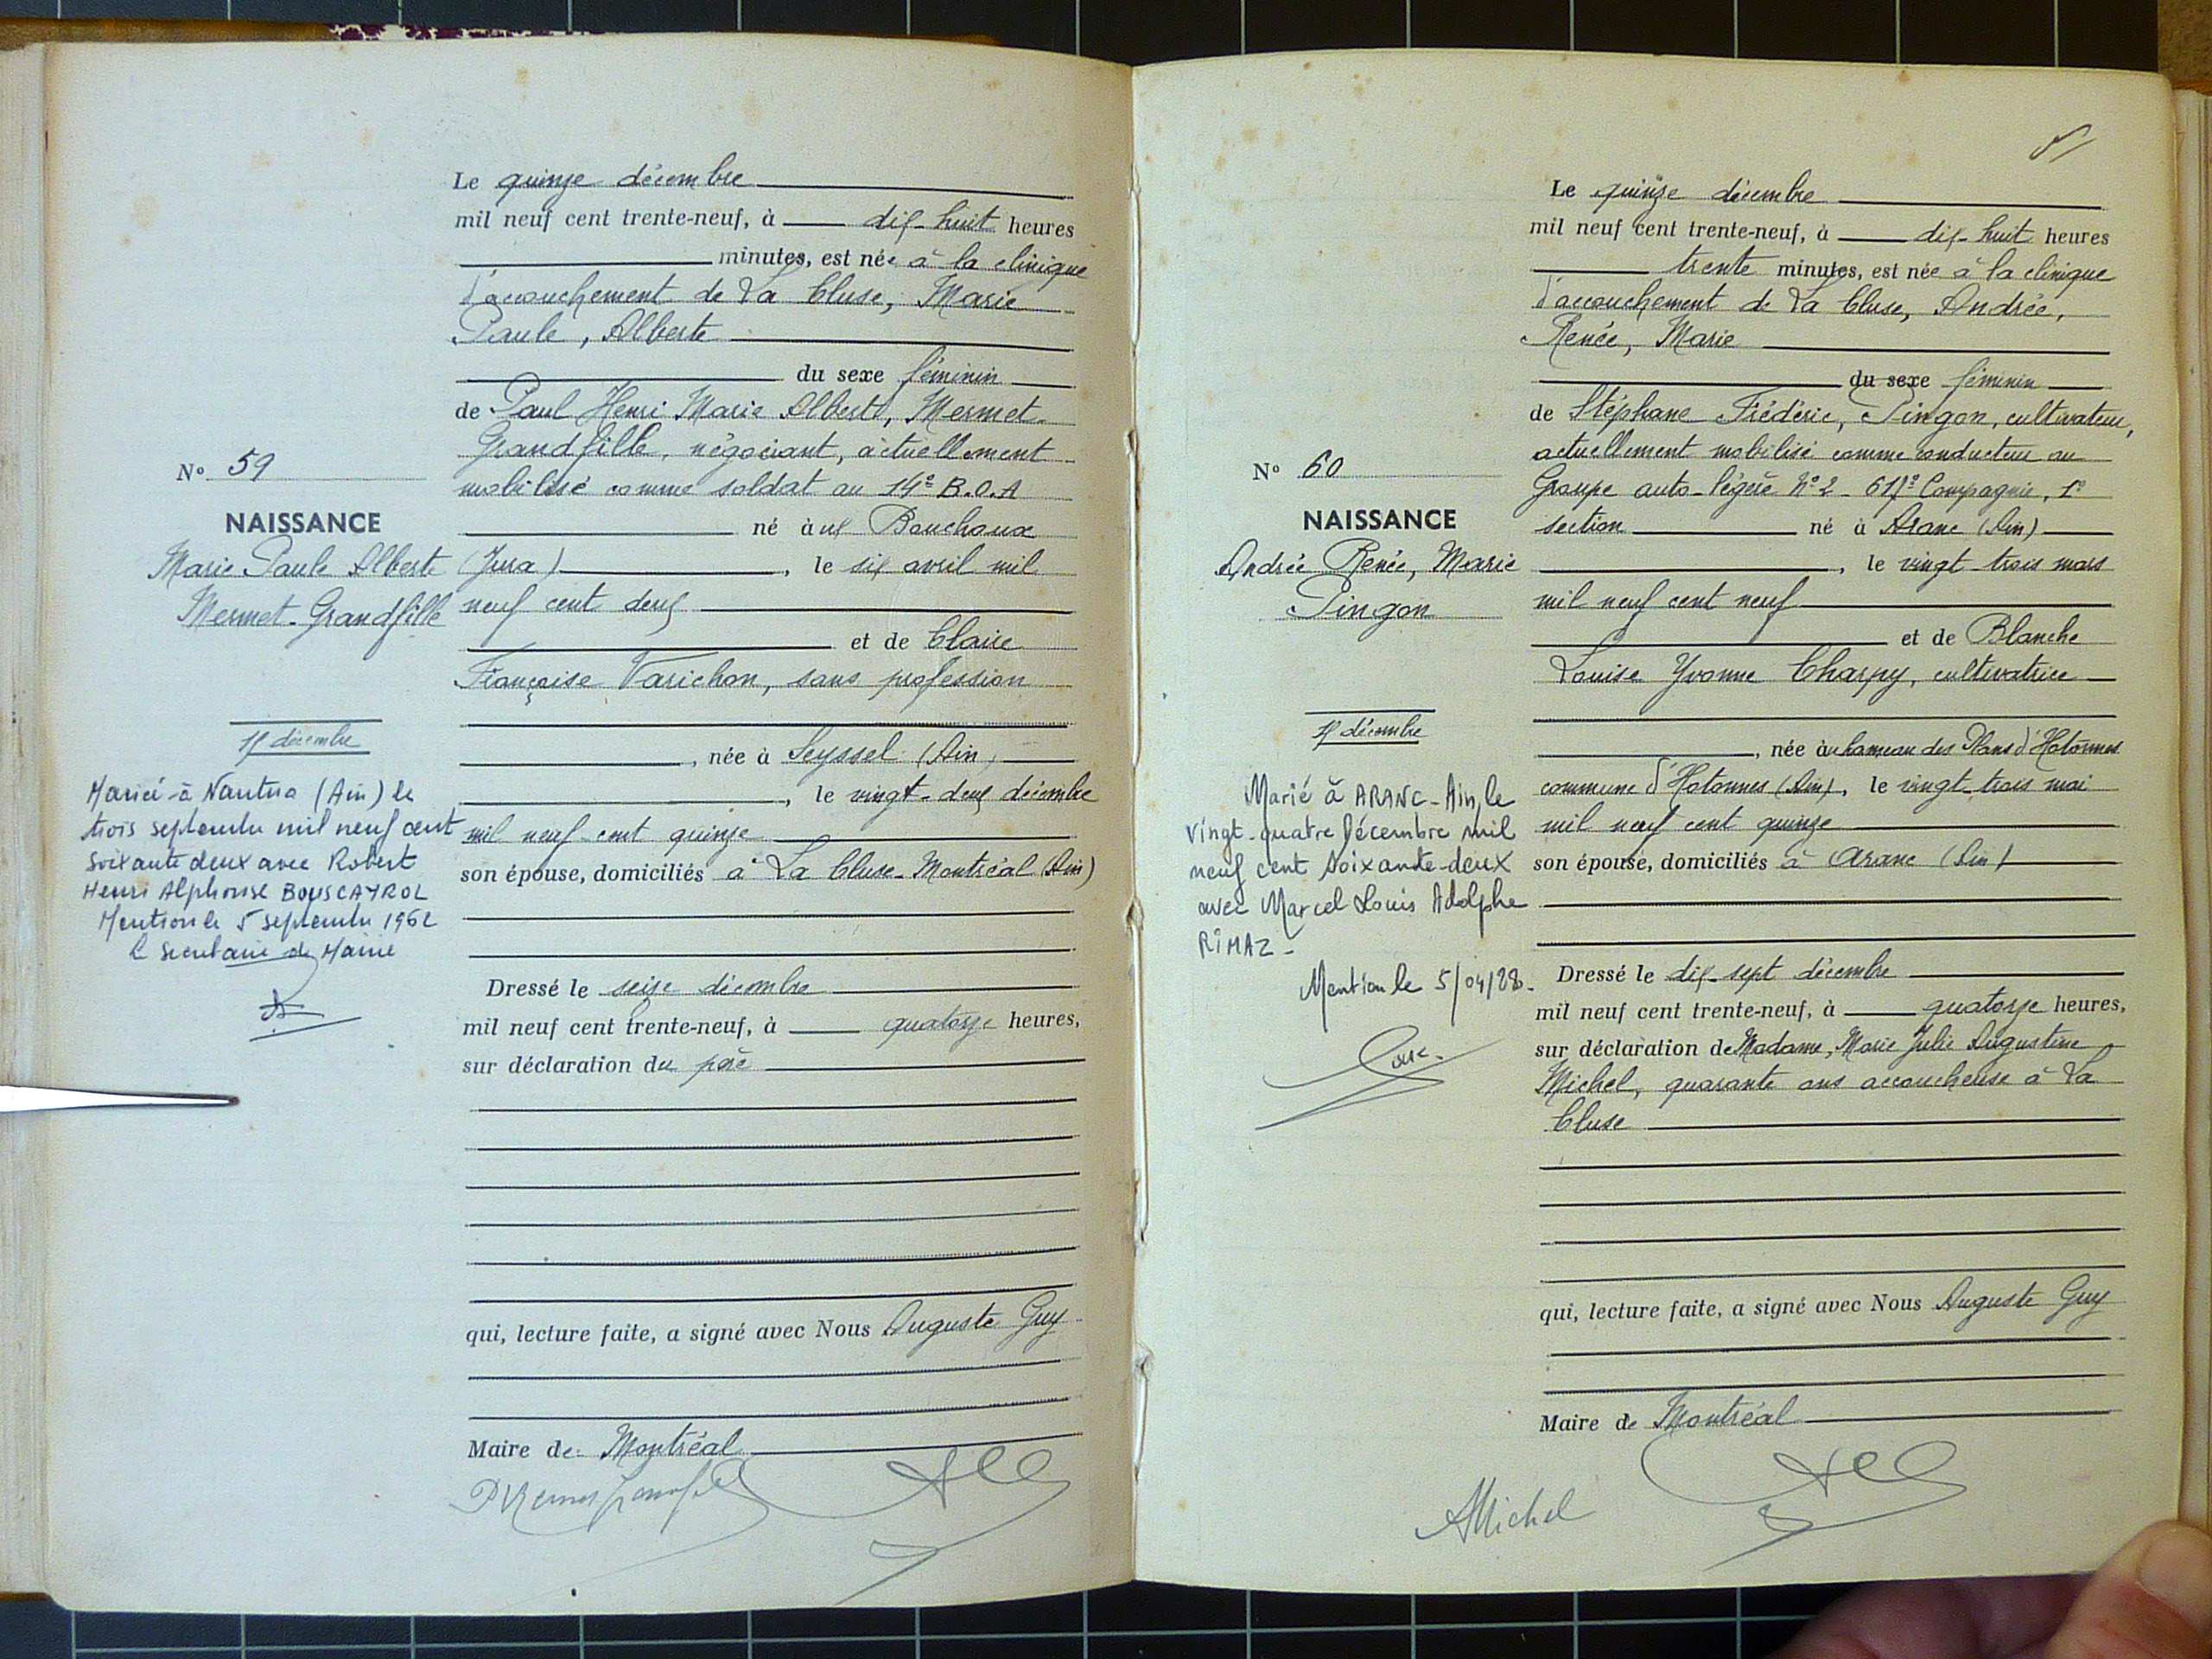 Le quinze décembre
mil neuf cent trente-neuf, à dix-huit heures
minutes, est née à la clinique
d'accouchement de La Cluse, Marie
Paule, Alberte
du sexe féminin
de Paul Henri Marie Albert, Mermet-
Grandfille, négociant, actuellement
mobilisé comme soldat au 14e B.O.A
né aux Bouchoux
(Jura), le six avril mil
neuf cent deux
et de Claire
Françoise Varichon, sans profession
, née à Seyssel (Ain)
, le vingt-deux décembre
mil neuf cent quinze
son épouse, domiciliés à La Cluse-Montréal (Ain)
Dressé le seize décembre
mil neuf cent trente-neuf, à quatorze heures,
sur déclaration du père
qui, lecture faite, a signé avec Nous Auguste Guy
Maire de Montréal
N° 59
NAISSANCE
Marie Paule Alberte
Mermet-Grandfille
15 décembre
Mariée à Nantua (Ain) le
trois septembre mil neuf cent
soixante deux avec Robert
Henri Alphonse BOUSCAYROL
Mention le 5 septembre 1962
Le secrétaire de Mairie
Le quinze décembre
mil neuf cent trente-neuf, à dix-huit heures
trente minutes, est née à la clinique
d'accouchement de La Cluse, Andrée,
Renée, Marie
du sexe féminin
de Stéphane Frédéric, Pingon, cultivateur,
actuellement mobilisé comme conducteur au
Groupe auto-légère N° 2 - 617e Compagnie, 1e
section né à Aranc (Ain)
, le vingt-trois mars
mil neuf cent neuf
et de Blanche
Louise Yvonne Charpy, cultivatrice
, née au hameau des Plans d'Hotonnes
commune d'Hotonnes (Ain), le vingt-trois mai
mil neuf cent quinze
son épouse, domiciliés à Aranc (Ain)
Dressé le dix-sept décembre
mil neuf cent trente-neuf, à quatorze heures,
sur déclaration de Madame, Marie Julie Augustine
Michel, quarante ans accoucheuse à La
Cluse
qui, lecture faite, a signé avec Nous Auguste Guy
Maire de Montréal
AMichel
N° 60
NAISSANCE
Andrée Renée, Marie
Pingon
15 décembre
Marié à ARANC-Ain, le
vingt-quatre Décembre mil
neuf cent soixante-deux
avec Marcel Louis Adolphe
RIMAZ-
Mention le 5/04/